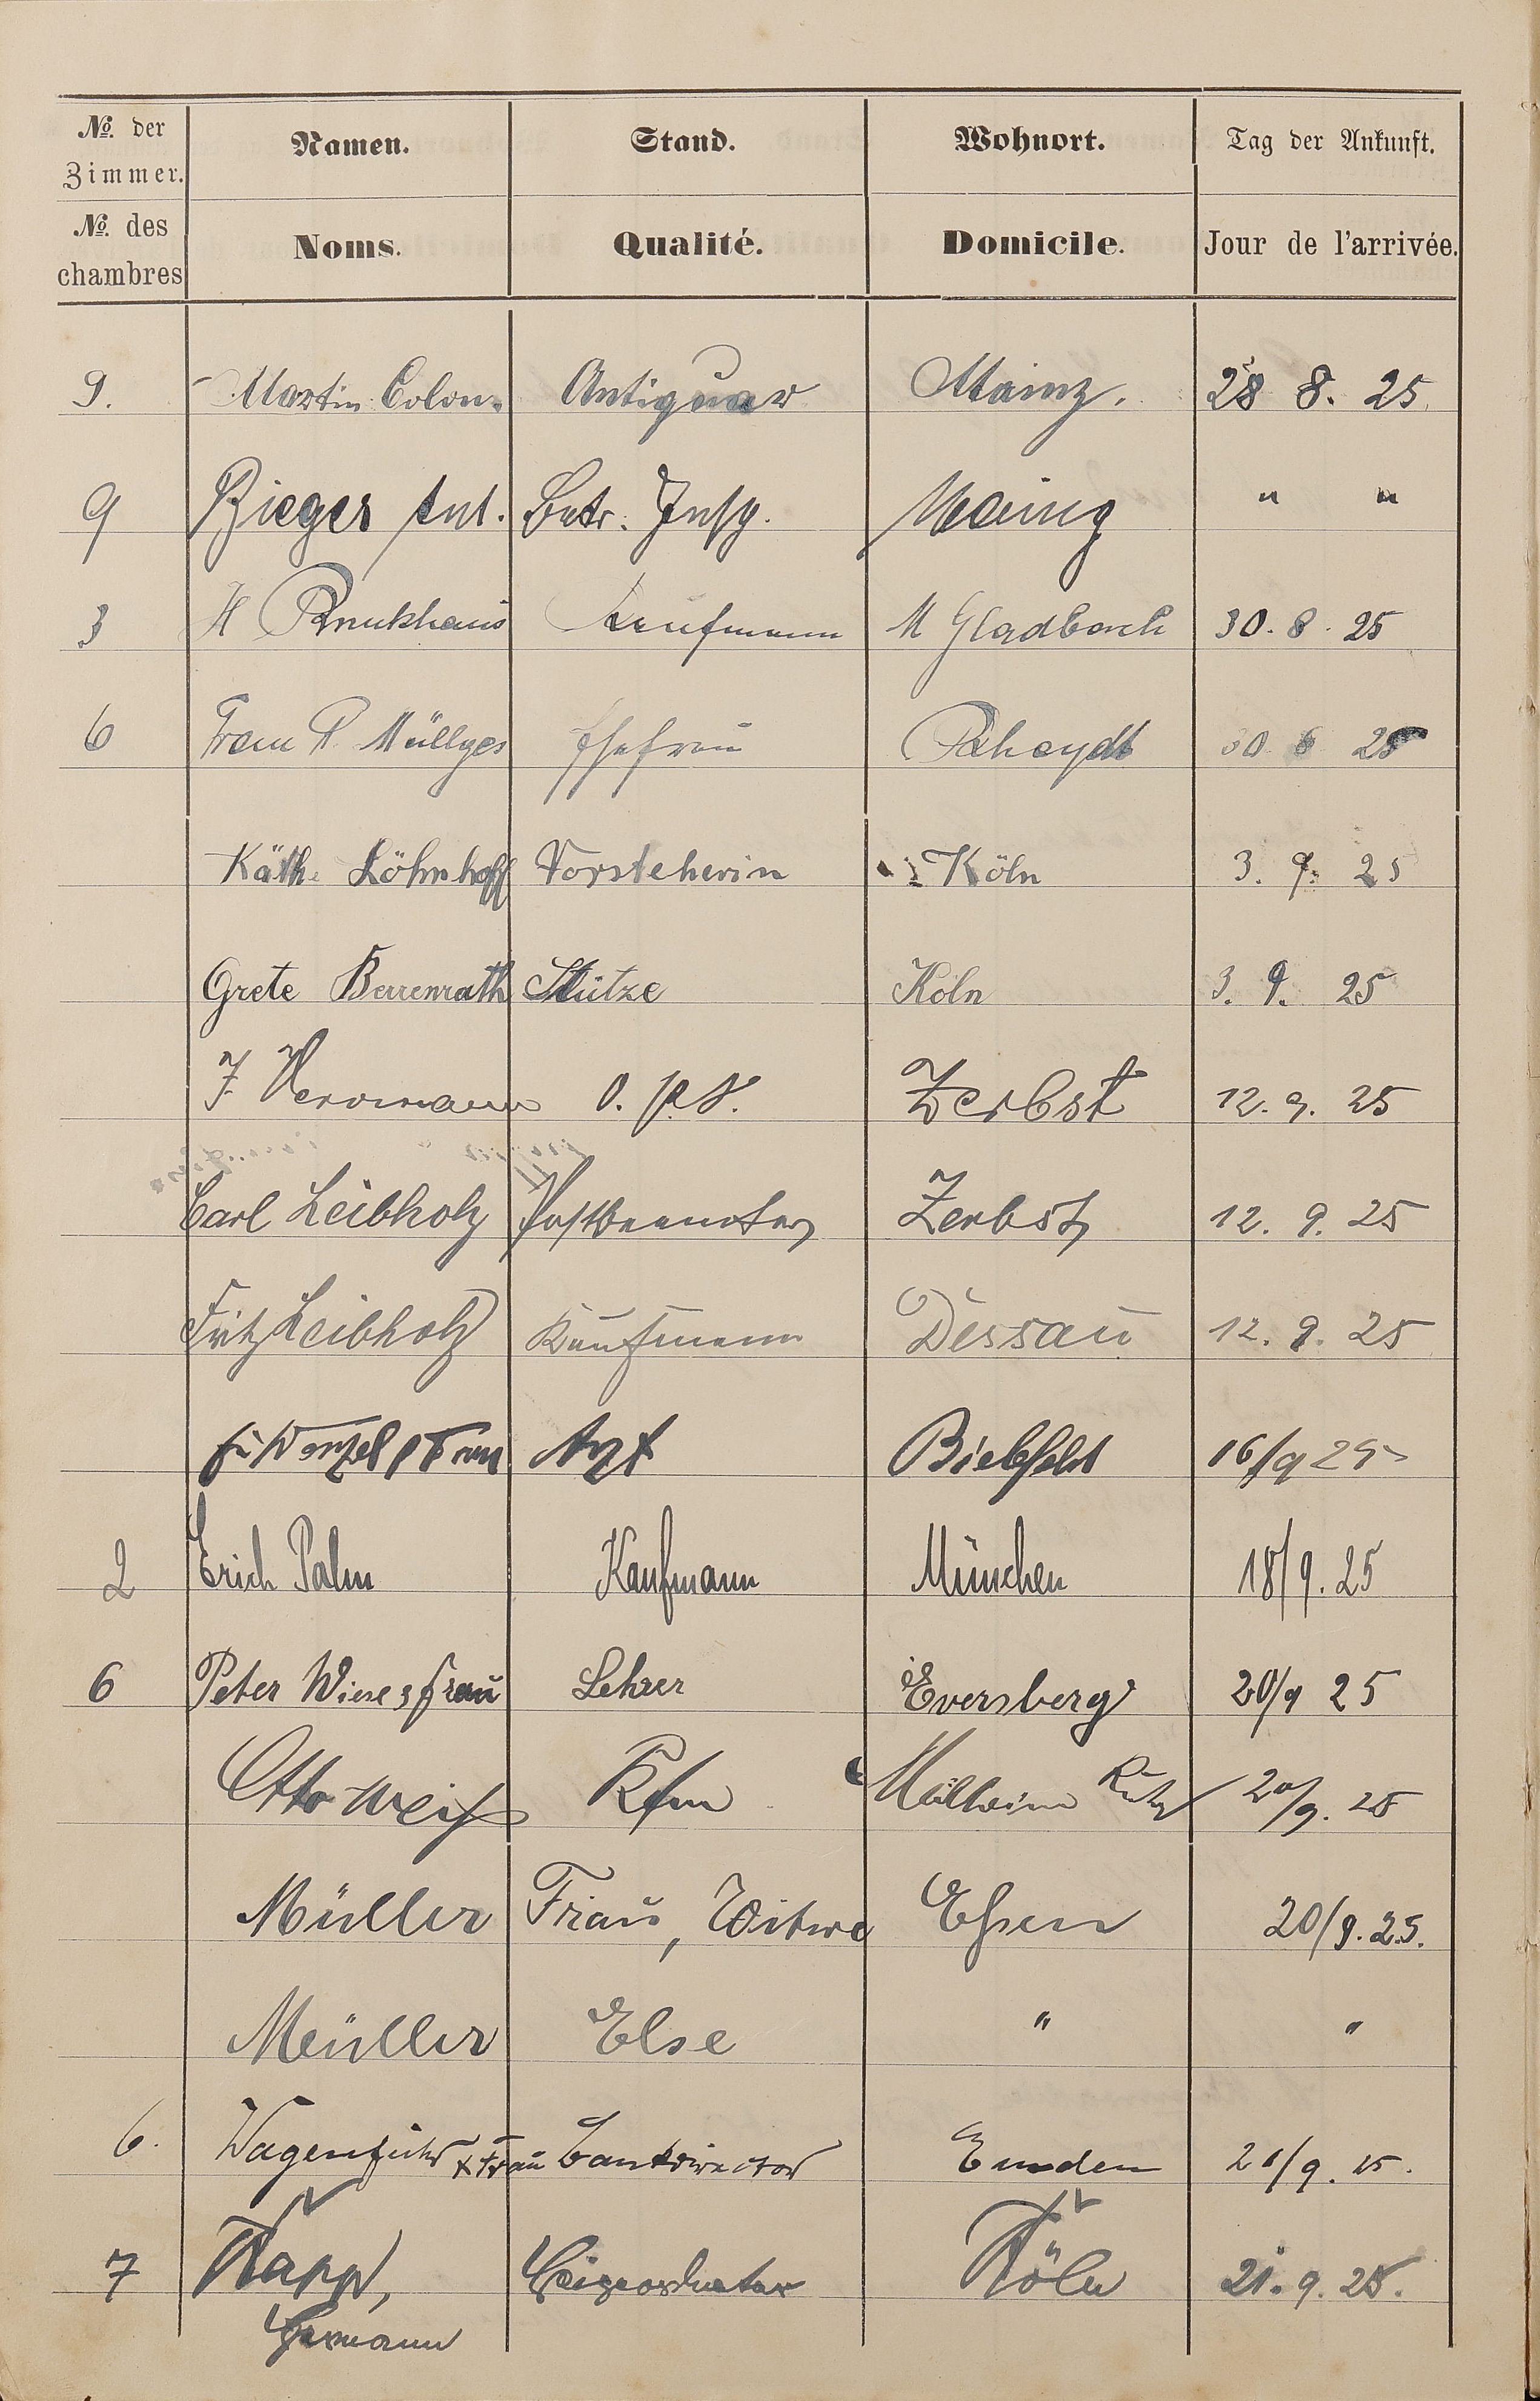 No. der Zimmer. Namen. Stand. Wohnort. Tag der Ankunft.
No. des chambres Noms. Qualité. Domicile. Jour de l'arrivée.
9. Martin Colon. Antiquar Mainz. 28 8. 25
9 Rieger Ant. Betr. Insp. Mainz " "
3 H Kaufmann M Gladbach 30. 8. 25
6 Frau P. Müllges Ehefrau Rheydt 30 8 25
Käth. Löhnhoff Vorsteherin Köln 3. 9. 25
Grete Berrenrath Stütze Köln 3. 9. 25
F. Herrmann O. P. S. Zerbst 12. 9. 25
Carl Leibholz Postbeamter Zerbst 12. 9. 25
Fritz Leibholz Kaufmann Dessau 12. 9. 25
Arzt Bielefeld 16/9 25
2 Erich Palm Kaufmann München 18/9. 25
6 Peter Wiese & Frau Lehrer Eversberg 20/9 25
Otto Weiß Kfm Mülheim Ruhr 20/9. 25
Müller Frau, Witwe Essen 20/9. 25.
Müller Else " "
6. Wagenführ & Frau Bankdirector Emden 21/9. 25.
7 Rapp, Beigeordneter Köln 21. 9. 25.
Hermann